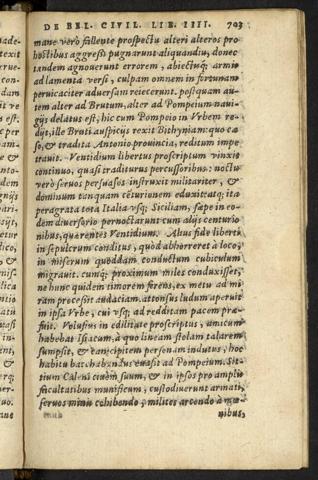 DE BEL. CIVIL. LIB. IIII. 703
mane verò fallente prospectu alteri alteros pro
hostibus aggressi pugnarunt aliquandiu, donec
tandem agnouerunt errorem, abiectisq; armis
ad lamenta versi, culpam omnem in fortunam
peruicaciter aduersam reiecerunt. postquam au-
tem alter ad Brutum, alter ad Pompeium naui-
gijs delatus est, hic cum Pompeio in Vrbem re-
dijt, ille Bruti auspicijs rexit Bithyniam: quo cæ
so, & tradita Antonio prouincia, reditum impe
trauit. Ventidium libertus proscriptum vinxit
continuo, quasi traditurus percussoribus: noctu
verò seruos persuasos instruxit militariter, &
dominum tanquam céturionem eduxit. atq; ita
peragrata tota Italia vsq; Siciliam, sæpe in eo-
dem diuersorio pernoctarunt cum alijs centurio
nibus, quærentes Ventidium. Alius fide liberti
in sepulcrum conditus, quod abhorreret à loco,
in miserum quoddam conductum cubiculum
migrauit. cunq; proximum miles conduxisset,
ne hunc quidem timorem ferens, ex metu ad mi
ram processit audaciam. attonsus ludum aperuit
in ipsa Vrbe, cui vsq; ad redditam pacem præ-
fuit. Volusius in edilitate proscriptus, amicum
habebat Isiacum, à quo lineam stolam talarem
sumpsit, & canicipitem personam indutus, hoc
habitu bacchabundus euasit ad Pompeium. Sit-
tium Caleni ciuem suum, & in ipsos pro amplis
facultatibus munificum, custodiuerunt armati,
seruos minis cohibendo, milites arcendo à mœ-
nibus,